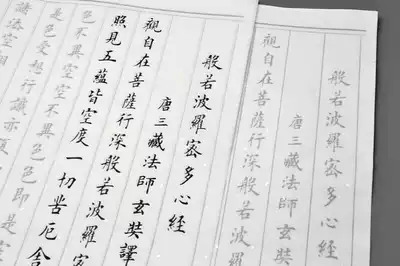 般若波羅密多心經
唐三藏法師玄奘
觀自在菩薩行深般若
般若波羅密多心經
唐三藏法師玄奘譯
觀自在菩薩行深般若波羅密
照見五蘊皆空度一切苦厄舍
色不異空空不異色色即是空
是色受想行識亦復
諸法空相